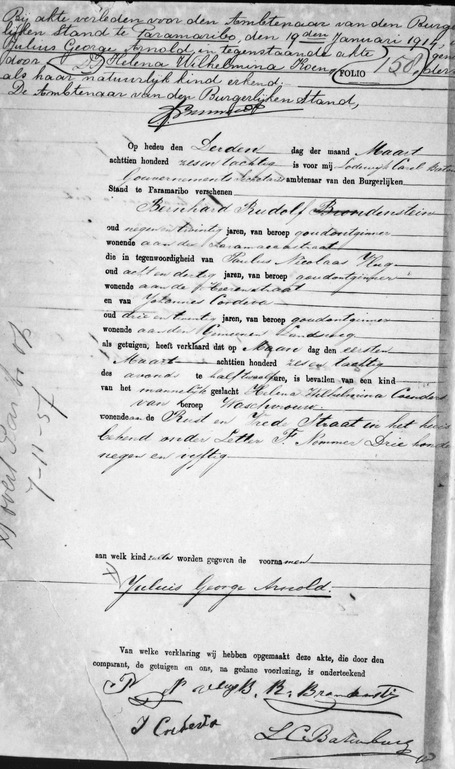 Bij akte verleden voor den Ambtenaar van den Burge-
lijken Stand te Paramaribo, den 19den Januari 1914, is
Julius George Arnold, in tegenstaande akte gem
door Helena Wilhelmina
FOLIO 158
als haar natuurlijk kind erkend.
De Ambtenaar van den Burgerlijken Stand,
Op heden den Derden dag der maand Maart
achttien honderd zes en tachtig is voor mij Lodewijk Carel
Gouvernements ambtenaar van den Burgerlijken
Stand te Paramaribo verschenen
Bernhard Rudolf
oud negen en twintig jaren, van beroep goudontginner
wonende aan de Saramaccastraat
die in tegenwoordigheid van Paulus Nicolaas Vlug
oud acht en dertig jaren, van beroep goudontginner
wonende aan de Heerenstraat
en van Johannes
oud drie en twintig jaren, van beroep goudontginner
wonende aan den Gemeenen Landsweg
als getuigen, heeft verklaard dat op Maandag den eersten
Maart achttien honderd zes en tachtig
des avonds te half twaalf ure, is bevallen van een kind
van het mannelijk geslacht Helena Wilhelmina
van beroep Waschvrouw
wonende aan de Rust en Vrede Straat in het huis
bekend onder Letter F. Nommer Drie honderd
negen en vijftig
aan welk kind zullen worden gegeven de voornamen
Juluis George Arnold.
Van welke verklaring wij hebben opgemaakt deze akte, die door den
comparant, de getuigen en ons, na gedane voorlezing, is onderteekend
P N Vlug B. R.
L. C. Batenburg
7-11-57